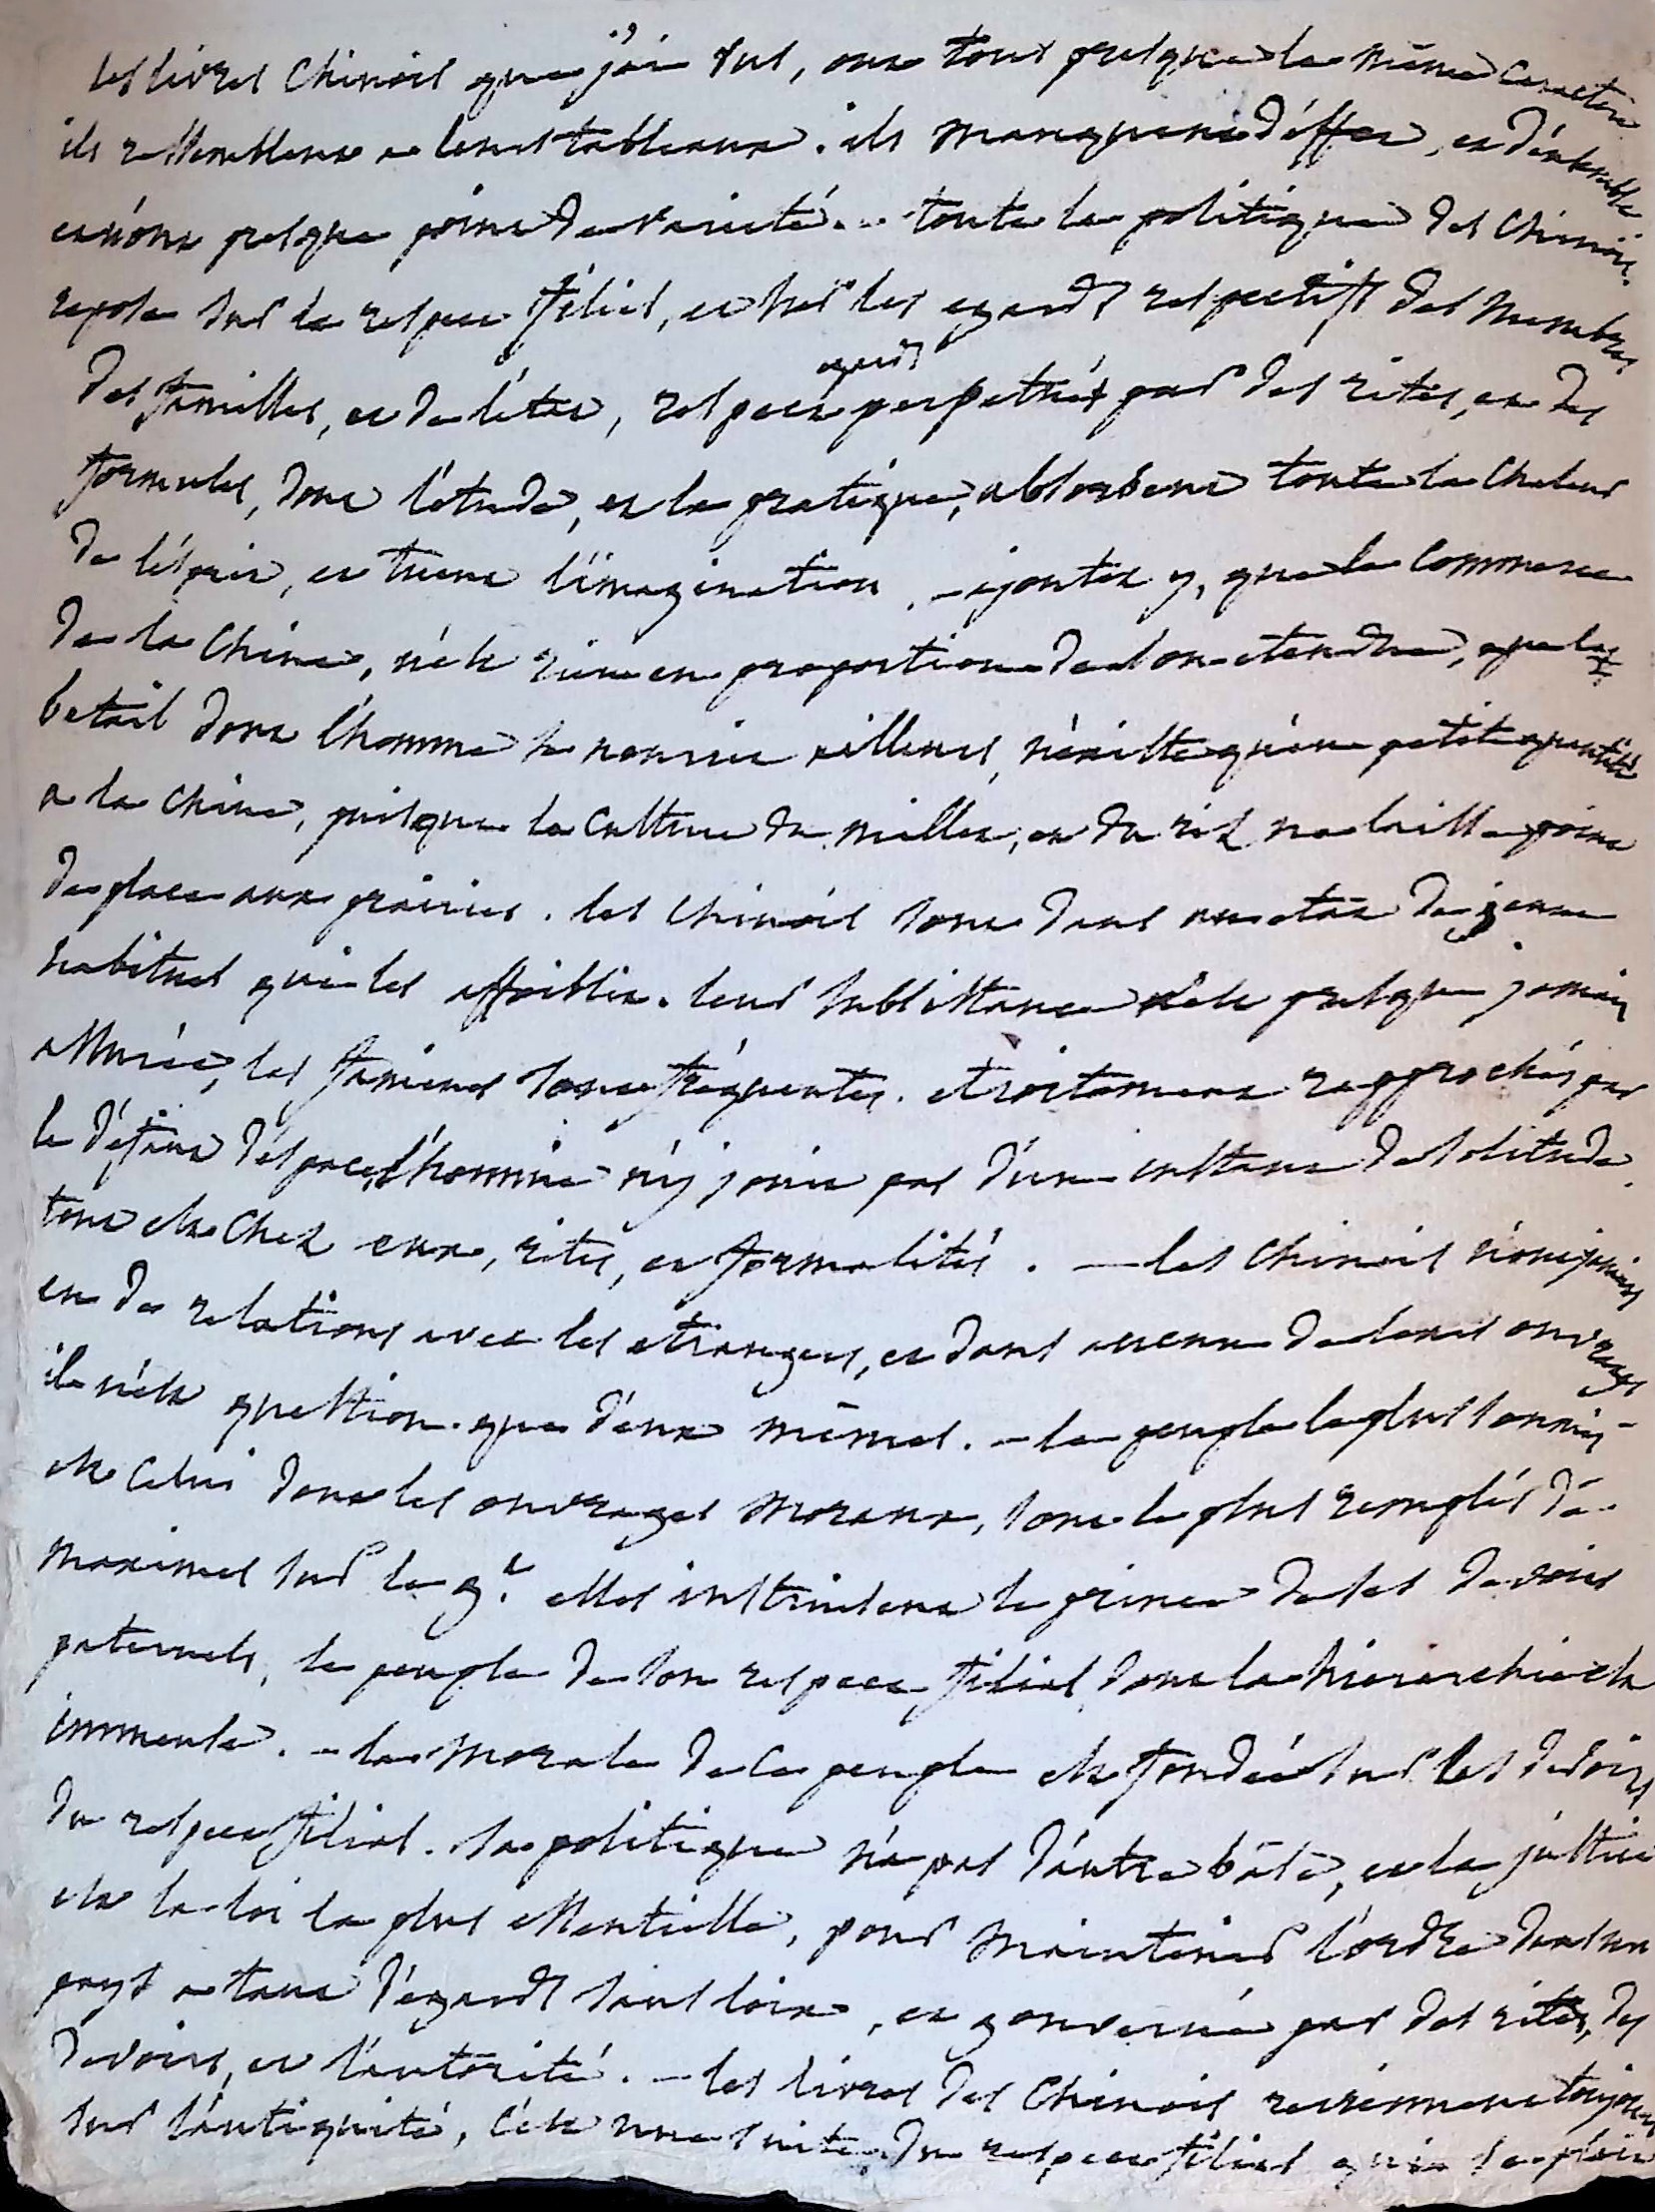 les livres Chinois que j'ai lus, ont tous presque le même Caractère
ils ressemblent a leurs tableaux. ils manquent d'effet, et d'ensemble
et n'ont presque point de varieté... toute la politique des Chinois
repose sur le respect filial, et sur les egards respectifs des membres
des familles, et de l'état, respect egards perpetués par des rites, et des
formules, dont l'etude, et la pratique, absorbent toute la Chaleur
de l'esprit, et tuent l'imagination. - ajoutez y, que le Commerce
de la Chine, n'est rien en proportion de son etendue, que le
betail dont l'homme se nourrit ailleurs, n'existe qu'en petite quantité
a la Chine, puisque la Culture du millet, et du riz ne laisse point
de place aux prairies. les Chinois sont dans un état de jeune
habituel qui les affoiblit. leur subsistance n'est presque jamais
assurée, les famines sont fréquentes. etroitement rapprochés par
le défaut d'espace, l'homme n'y jouit pas d'un instant de solitude.
tout est chez eux, rites, et formalités. - les Chinois n'ont jamais
eu de relations avec les etrangers, et dans aucun de leurs ouvrages
il n'est question que d'eux mêmes. - le peuple le plus soumis
est Celui dont les ouvrages moraux, sont le plus remplis de
maximes sur le g.t elles instruisent le prince de ses devoirs
paternels, le peuple de son respect filial, dont la hierarchie est
immense. - la morale de Ce peuple est fondée sur les devoirs
du respect filial. sa politique n'a pas d'autre base, et la justice
est la loi la plus essentielle, pour maintenir l'ordre dans un
pays a tant d'egards sans loix, et gouverné par des rites, des
devoirs, et l'autorité. - les livres des Chinois reviennent toujours
sur l'antiquité, C'est une suite du respect filial qui se plait